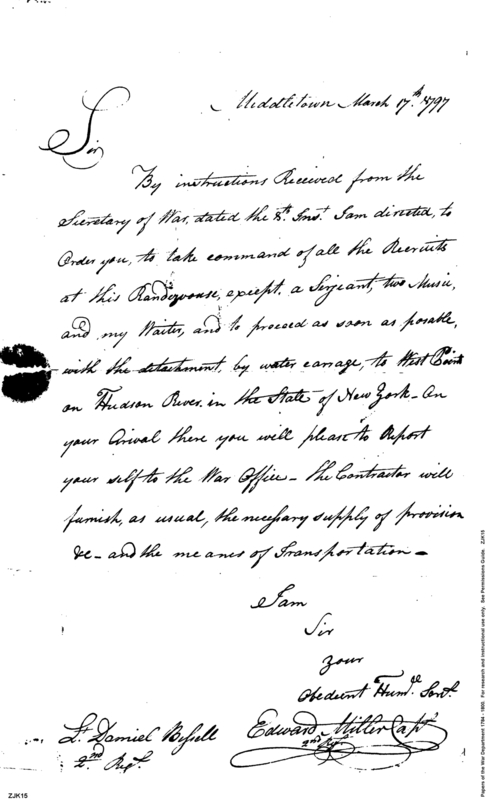 Middletown March 17th. 1797
Sir
By instructions Received from the
Secretary of War, dated the 8th. Inst. I am directed, to
Order you, to take command of all the Recruits
at this Randezvouse, except, a Sirjeant, two Music,
and my Waiter, and to proceed as soon as posable,
with the detachment, by water carrage, to West Point
on Hudson River. in the State of New York - On
your Arival there you will please to Report
your self to the War Office - the Contractor will
furnish, as usual, the necessary supply of provision
&c - and the meanes of Transportation -
I am
Sir
your
Obedient Humle. Servt.
Edward Miller Capt
2nd Regt.
Lt. Daniel Bissell
2nd Regt.
ZJK15
Papers of the War Department 1784 - 1800. For research and instructional use only. See Permissions Guide. ZJK15